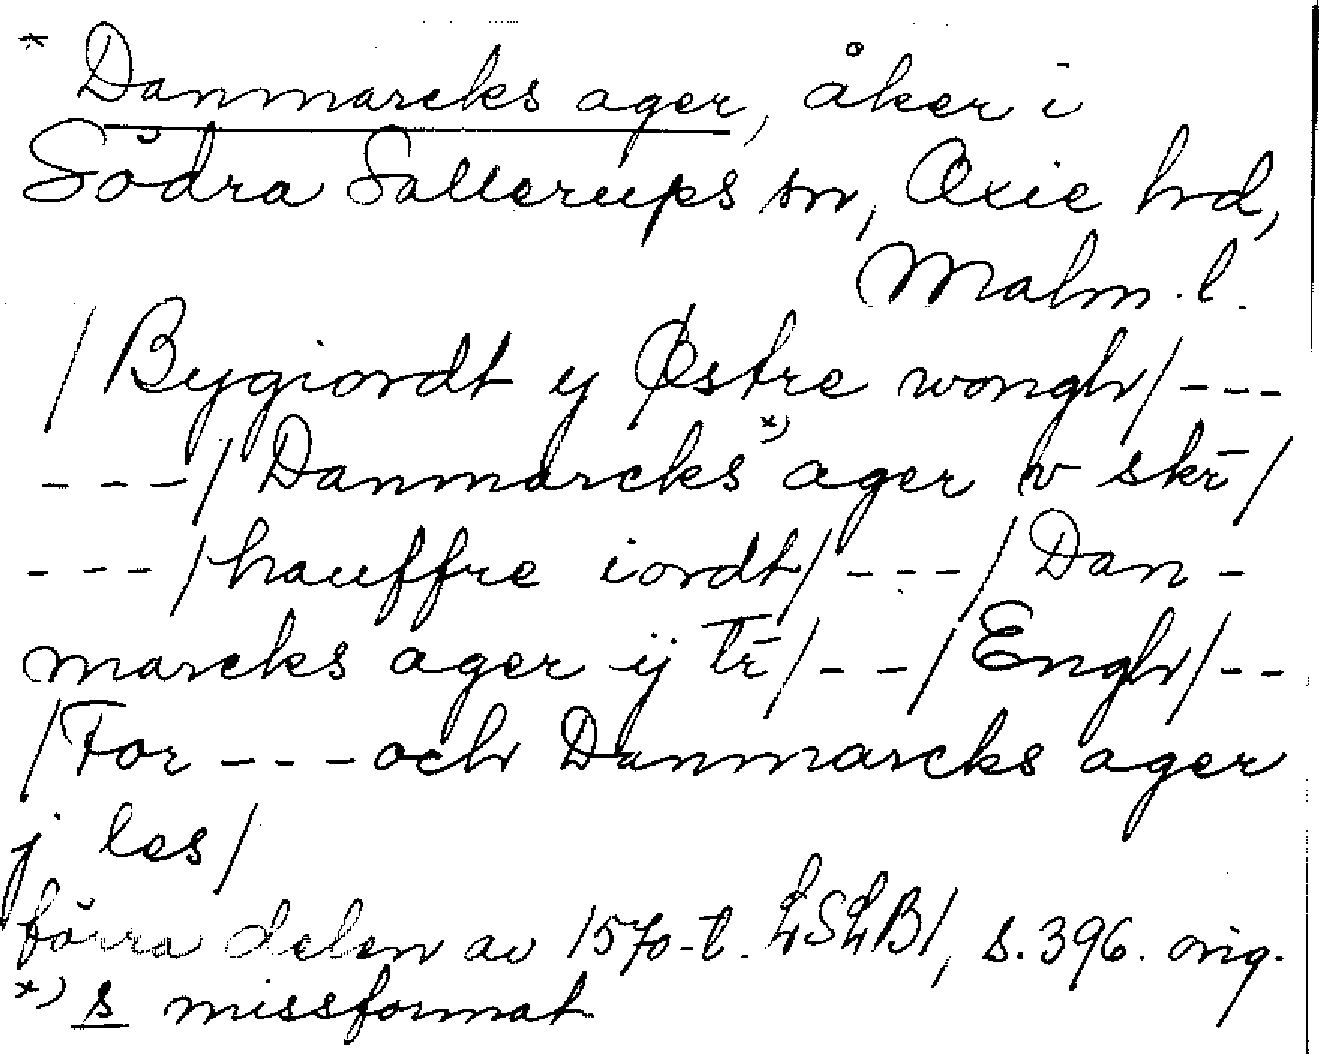 * Danmarcks ager, åker i
Södra Sallerups sn, Oxie hd,
Malm. l.
/Bygiordt y Østre wongh/---
---/Danmarcks*) ager v skr̄/
---/hauffre iordt/---/Dan-
marcks ager ÿ Tr̄/--/Engh/--
/For---och Danmarcks ager
j les/
förra delen av 1570-t. LSLB1, s.396. orig.
*) s missformat